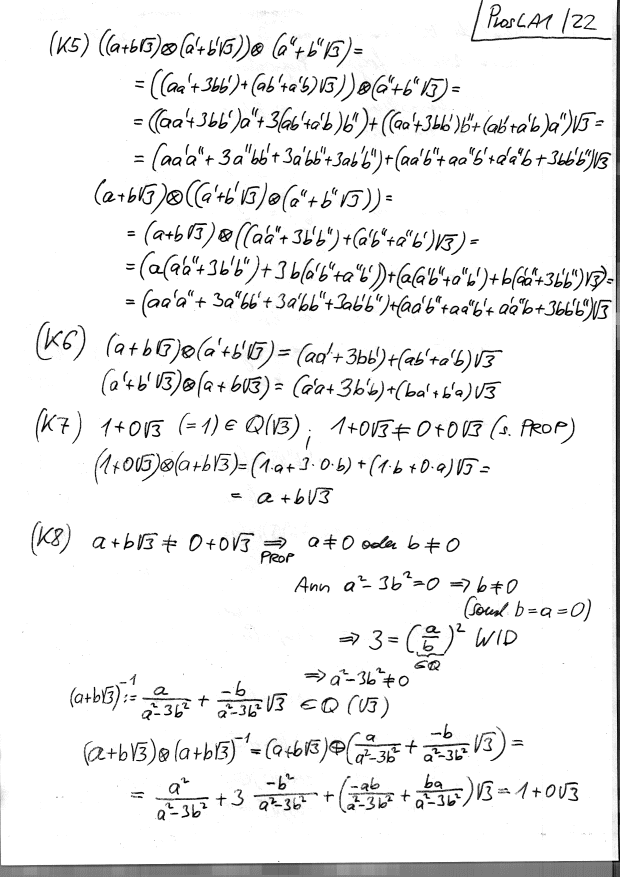 ProsLA1/22
(K5) ((a+b√3)⊗(a'+b'√3))⊗(a''+b''√3)=
=((aa'+3bb')+(ab'+a'b)√3))⊗(a''+b''√3)=
=((aa'+3bb')a''+3(ab'+a'b)b'')+((aa'+3bb')b''+(ab'+a'b)a'')√3=
=(aa'a''+3a''bb'+3a'bb''+3ab'b'')+(aa'b''+aa''b'+a'a''b+3bb'b'')√3
(a+b√3)⊗((a'+b'√3)⊗(a''+b''√3))=
=(a+b√3)⊗((a'a''+3b'b'')+(a'b''+a''b')√3)=
=(a(a'a''+3b'b'')+3b(a'b''+a''b'))+(a(a'b''+a''b')+b(a'a''+3b'b'')√3)=
=(aa'a''+3a''bb'+3a'bb''+3ab'b'')+(aa'b''+aa''b'+a'a''b+3bb'b'')√3
(K6) (a+b√3)⊗(a'+b'√3)=(aa'+3bb')+(ab'+a'b)√3
(a'+b'√3)⊗(a+b√3)=(a'a+3b'b)+(ba'+b'a)√3
(K7) 1+0√3 (=1)∈Q(√3); 1+0√3≠0+0√3 (s. PROP)
(1+0√3)⊗(a+b√3)=(1·a+3·0·b)+(1·b+0·a)√3=
= a+b√3
(K8) a+b√3≠0+0√3 ⇒ a≠0 oder b≠0
PROP
Ann a²-3b²=0 ⇒ b≠0
(sonst b=a=0)
⇒ 3=(a/b)² WID
∈Q
⇒ a²-3b²≠0
(a+b√3)⁻¹:= a/(a²-3b²) + -b/(a²-3b²)√3 ∈Q(√3)
(a+b√3)⊗(a+b√3)⁻¹=(a+b√3)⊕(a/(a²-3b²) + -b/(a²-3b²)√3)=
= a²/(a²-3b²) + 3 -b²/(a²-3b²) + (-ab/(a²-3b²) + ba/(a²-3b²))√3=1+0√3